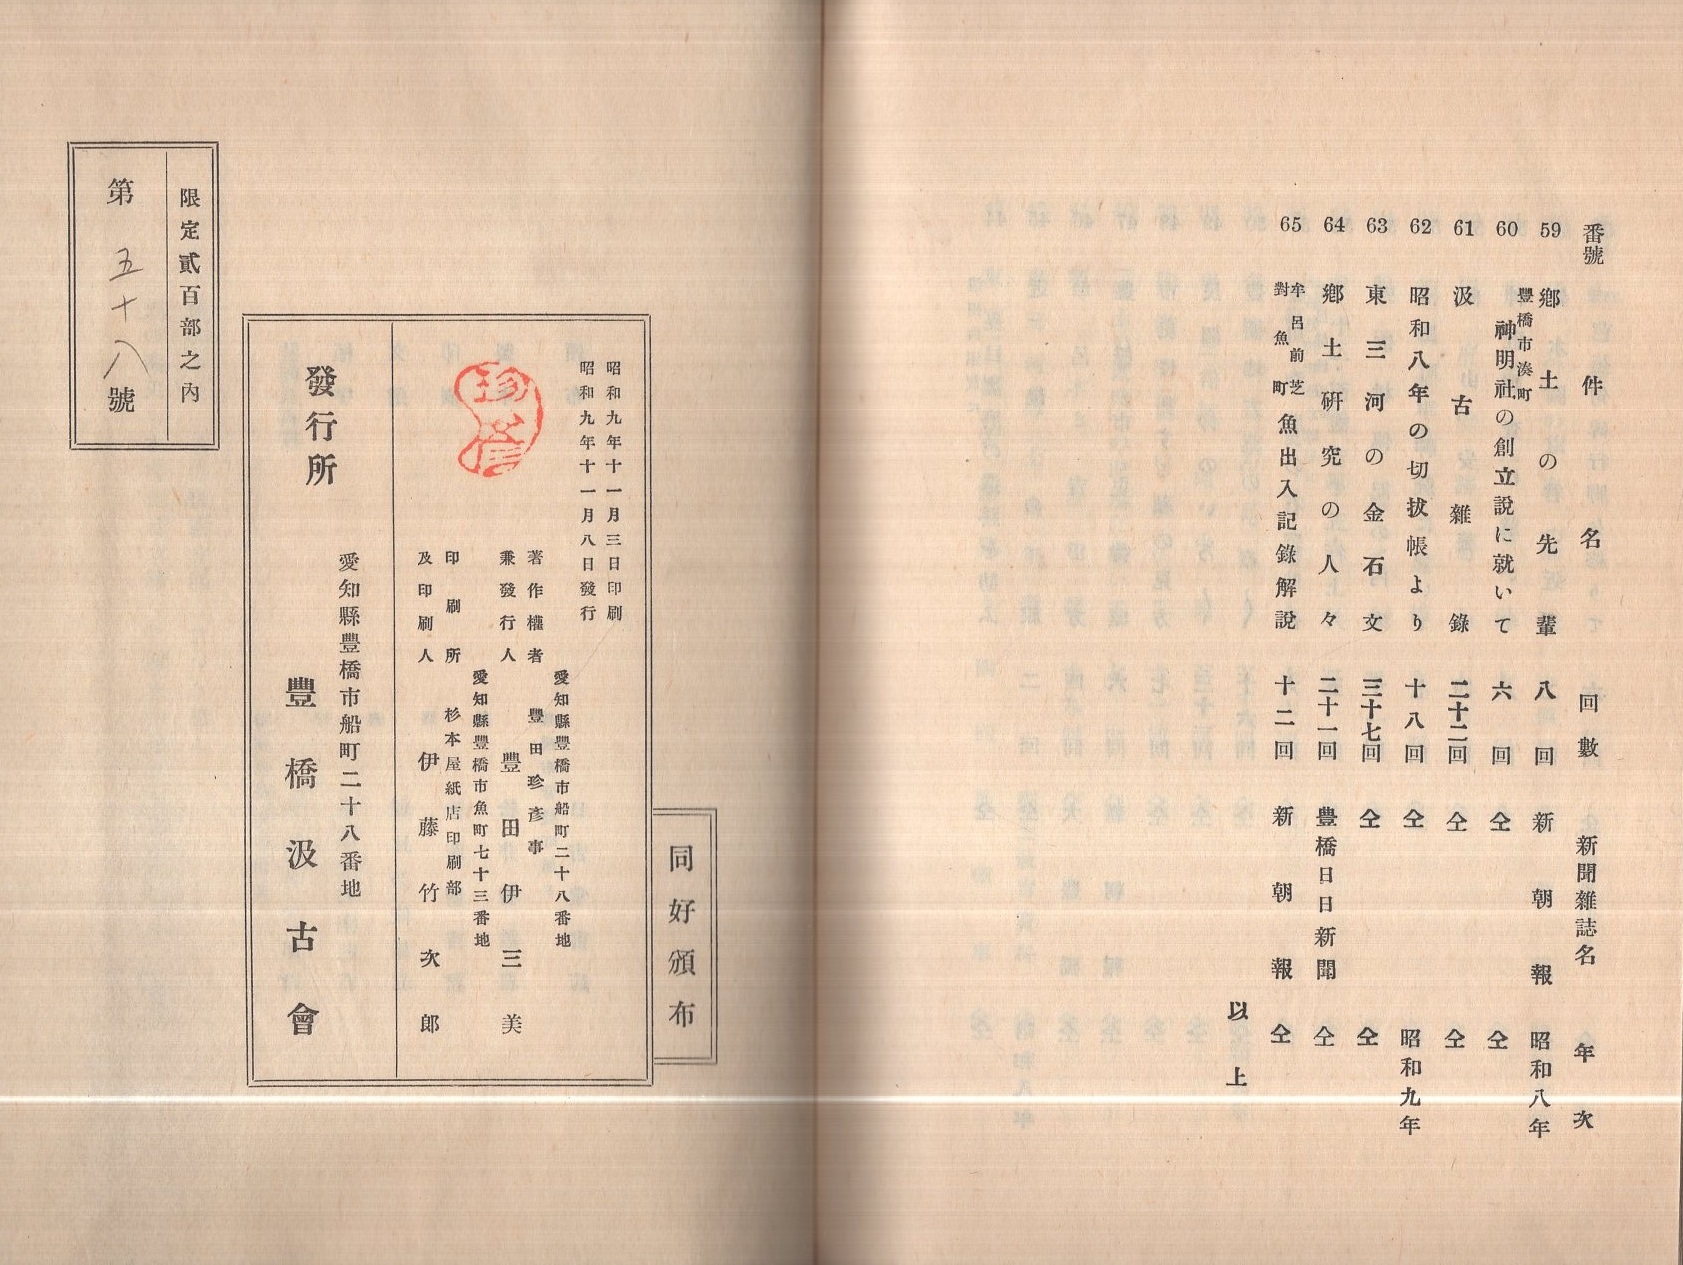 番號　件　名　回數　新聞雜誌名　年次
59　鄉土の先輩　八回　新朝報　昭和八年
60　豐橋市湊町神明社の創立說に就いて　六回　仝　仝
61　汲古雜錄　二十二回　仝　仝
62　昭和八年の切拔帳より　十八回　仝　昭和九年
63　東三河の金石文　三十七回　仝　仝
64　鄉土硏究の人々　二十一回　豊橋日日新聞　仝
65　牟呂前芝對魚町魚出入記錄解說　十二回　新朝報　仝
以上
同好頒布
昭和九年十一月三日印刷
昭和九年十一月八日發行
愛知縣豐橋市船町二十八番地
著作權者　豐田珍彥事
兼發行人　豐田伊三美
愛知縣豐橋市魚町七十三番地
印刷所　杉本屋紙店印刷部
及印刷人　伊藤竹次郎
愛知縣豐橋市船町二十八番地
發行所　豐橋汲古會
限定貳百部之內
第五十八號